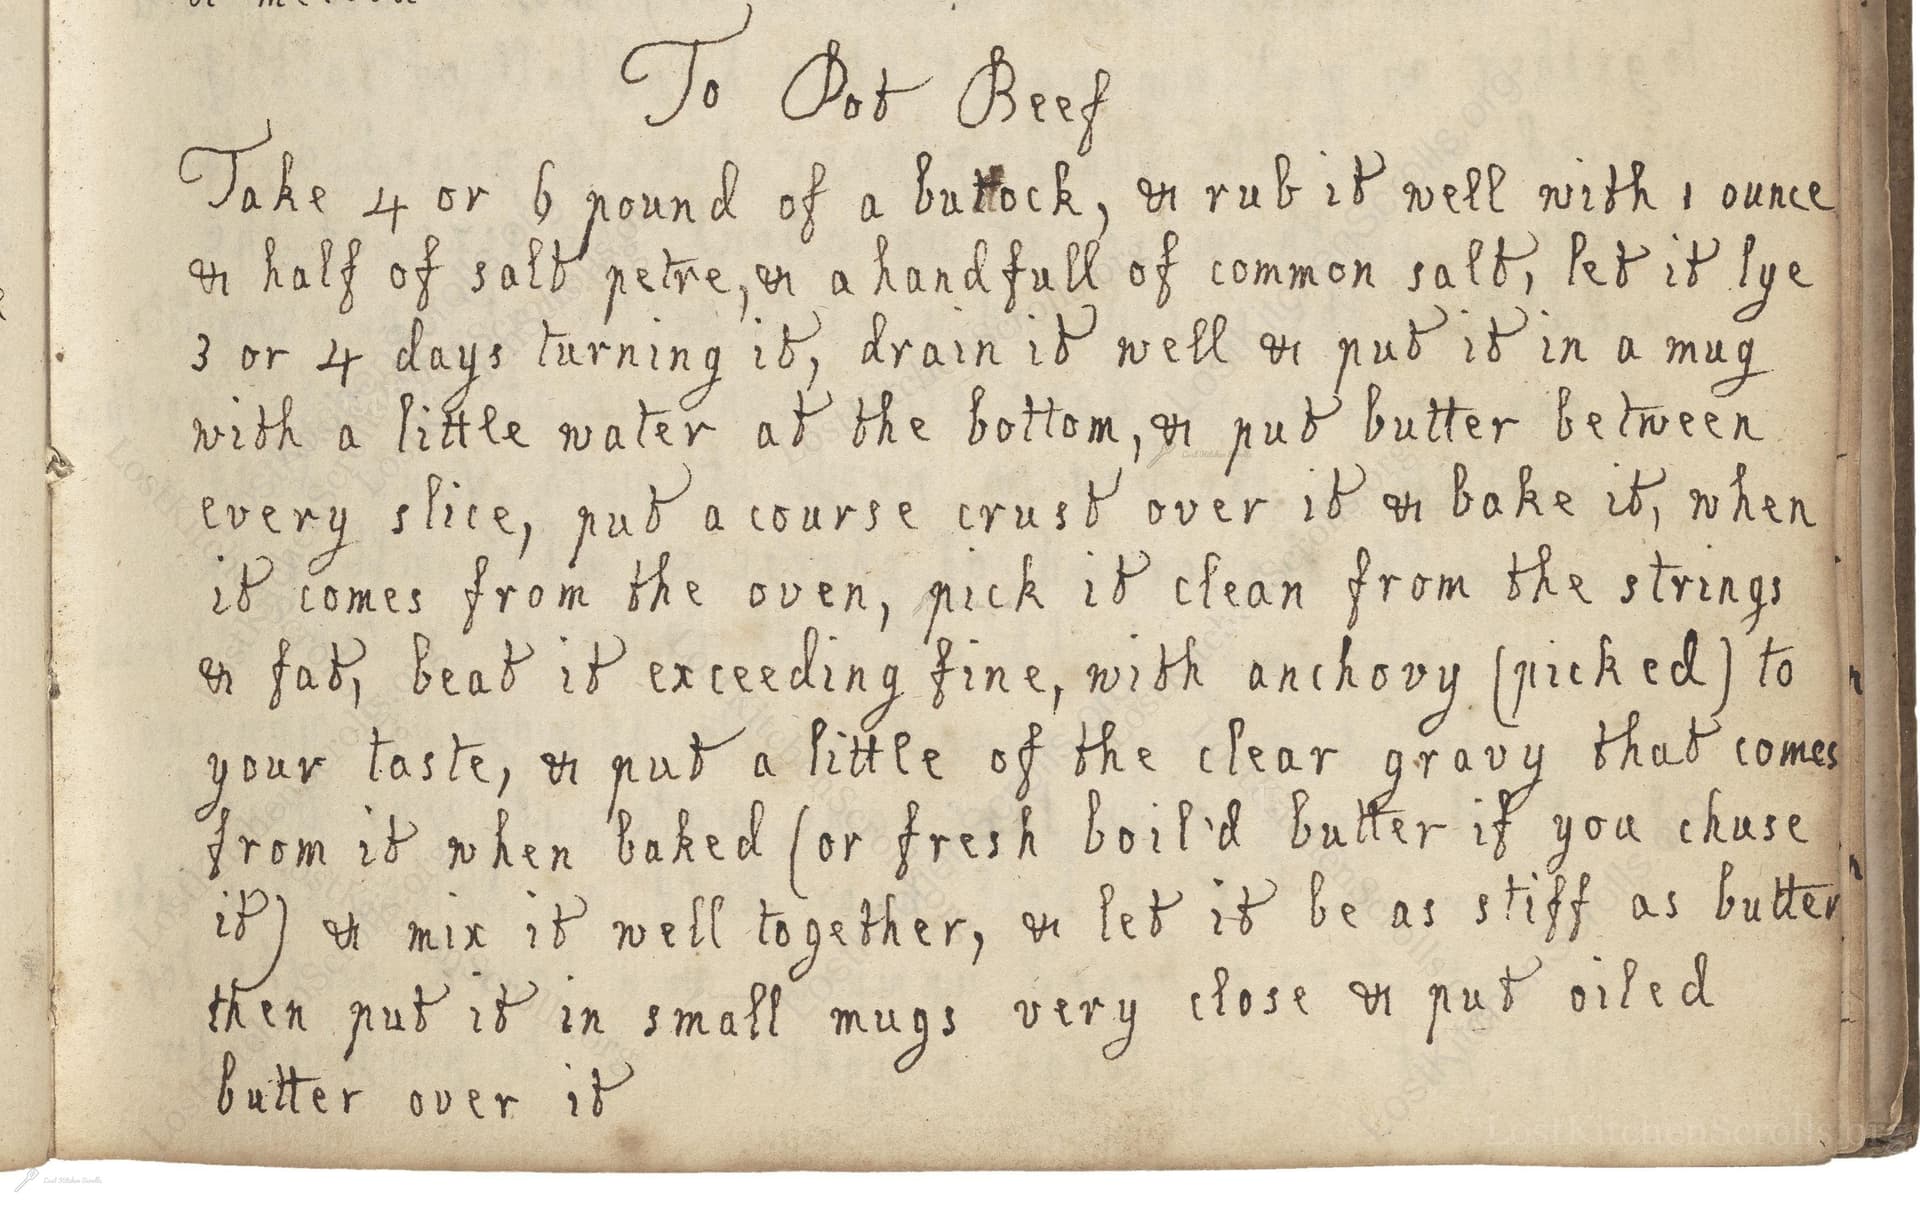 To Pot Beef
Take 4 or 6 pound of a buttock, & rub it well with 1 ounce
& half of salt petre, & a handfull of common salt, let it lye
3 or 4 days turning it, drain it well & put it in a mug
with a little water at the bottom, & put butter between
every slice, put a course crust over it & bake it, when
it comes from the oven, pick it clean from the strings
& fat, beat it exceeding fine, with anchovy (picked) to
your taste, & put a little of the clear gravy that comes
from it when baked (or fresh boil'd butter if you chuse
it) & mix it well together, & let it be as stiff as butter
then put it in small mugs very close & put oiled
butter over it
LostKitchenScrolls.org
Lost Kitchen Scrolls